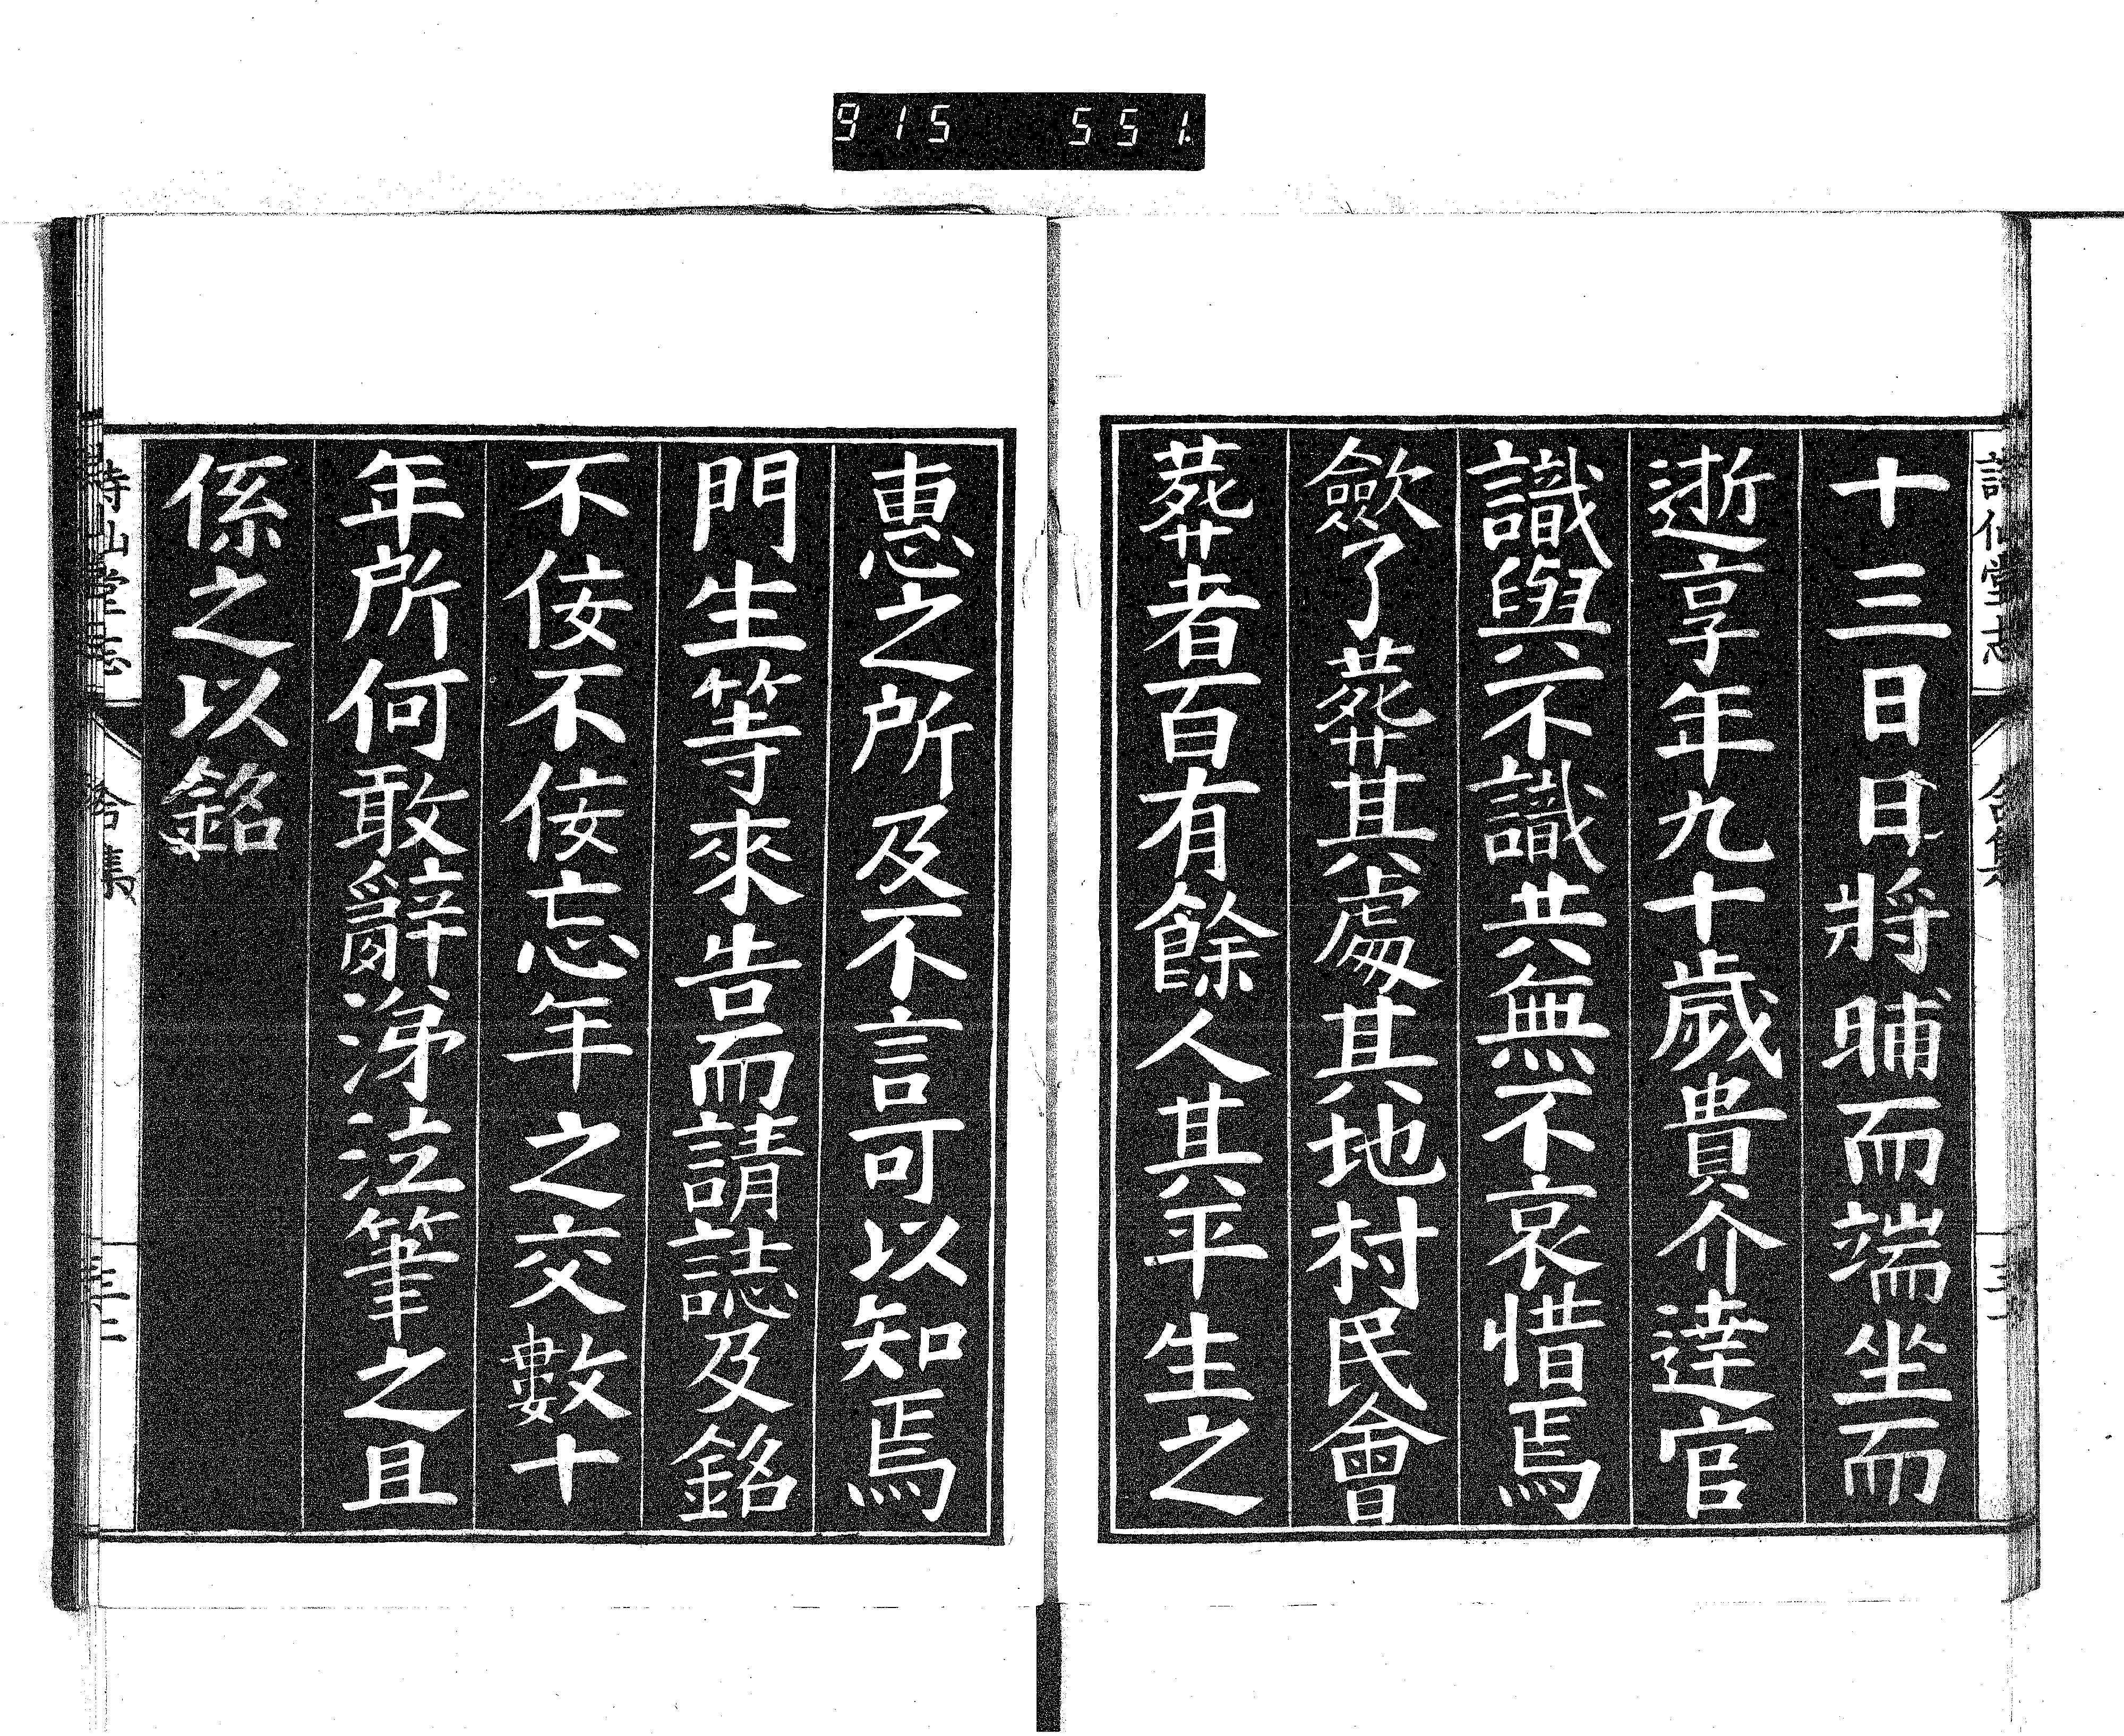 915 551
十三日日將晡而端坐而
逝享年九十歲貴介達官
識與不識共無不哀惜焉
斂了葬其處其地村民會
葬者百有餘人其平生之
惠之所及不言可以知焉
門生等來告而請誌及銘
不佞不佞忘年之交數十
年所何敢辭涕泣筆之且
係之以銘